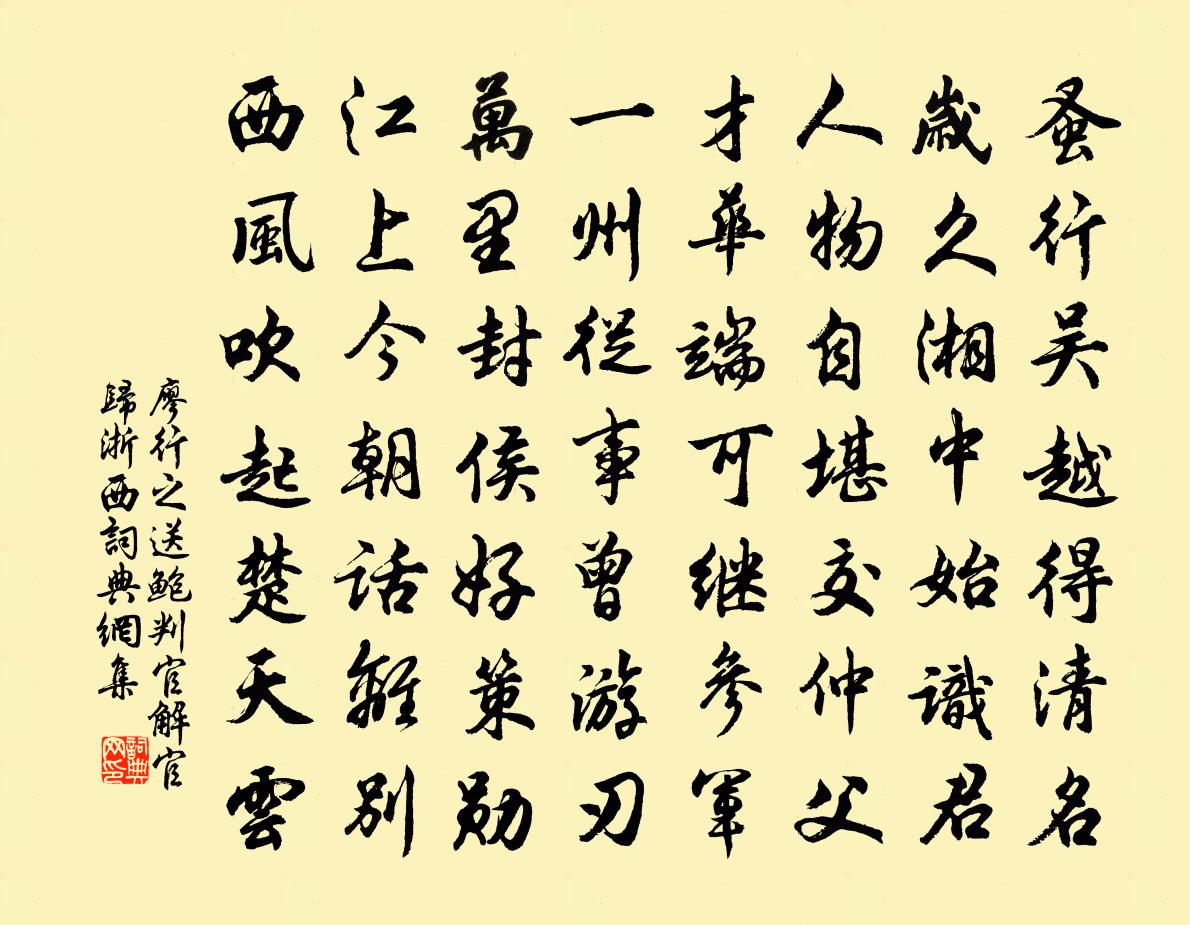 蚤行吴越得清名
歲久湘中始識君
人物自堪交仲父
才華端可继參軍
一州従事曾游刃
萬里封侯好策勋
江上今朝話離別
西風吹起楚天雲
廖行之送鲍判官解官
歸浙西詞典網集
詞典
网印